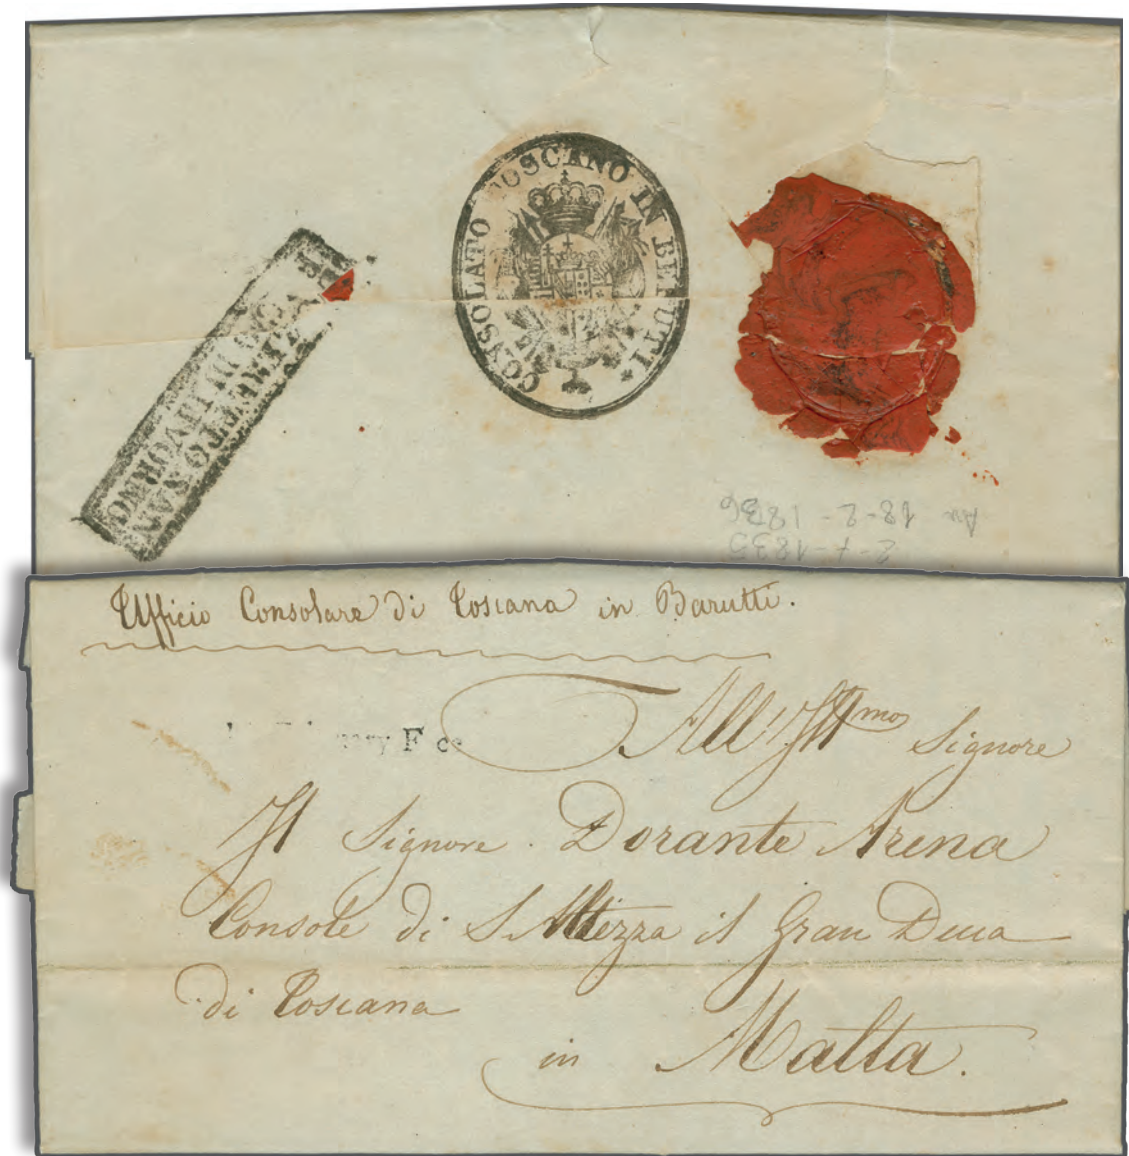 CONSOLATO TOSCANO IN BERUTTI.
LAZZERETTO SAN
DI LIVORNO
Arr 18-2-1836
2-7-1835
Ufficio Consolare di Toscana in Barutti.
All' Illmo Signore
Il Signore Dorante Arena
Console di S. Altezza il Gran Duca
di Toscana
in Malta.